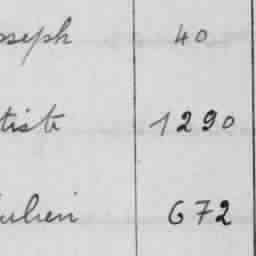 oseph 40
tiste 1290
ulien 672